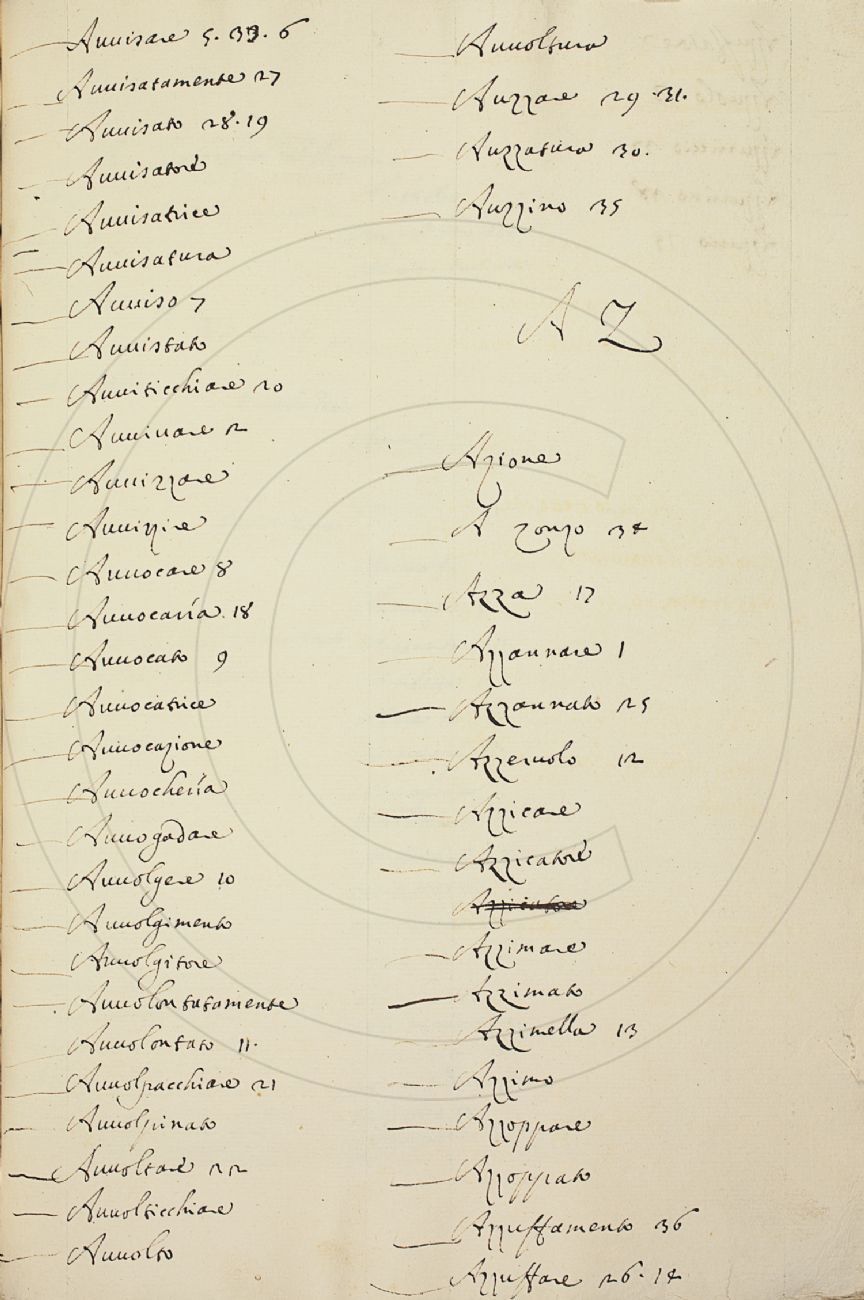 Auuisare 5. 33. 6
Auuisatamente 27
Auuisato 28. 19
Auuisatore
Auuisatrice
Auuisatura
Auuiso 7
Auuistato
Auuiticchiare 20
Auuiuare 2
Auuizzare
Auuizzire
Auuocare 8
Auuocaría. 18
Auuocato 9
Auuocatrice
Auuocazione
Auuochería
Auuogadare
Auuolgere 10
Auuolgimento
Auuolgitore
Auuolontatamente
Auuolontato 11.
Auuolpacchiare 21
Auuolpinato
Auuoltare 22
Auuolticchiare
Auuolto
Auuoltura
Auzzare 29. 31.
Auzzatura 30.
Auzzino 35
A Z
Azione
A zonzo 34
Azza 17
Azzannare 1
Azzannato 25
Azzeruolo 12
Azzicare
Azzicatore
Azzimare
Azzimato
Azzimella 13
Azzimo
Azzoppare
Azzoppato
Azzuffamento 36
Azzuffare 26. 14